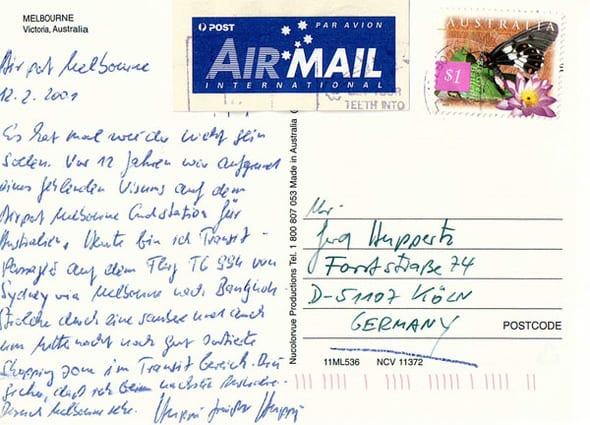 MELBOURNE
Victoria, Australia
POST
PAR AVION
AIR MAIL
INTERNATIONAL
TEETH INTO
AUSTRALIA
$1
Airport Melbourne
12.2.2001
Es hat mal wieder nicht sein
sollen. Vor 12 Jahren war aufgrund
eines fehlenden Visums auf dem
Airport Melbourne Endstation für
Australien. Heute bin ich Transit-
Passagier auf dem Flug TG 994 von
Sydney via Melbourne nach Bangkok
durch eine saubere und auch
um Mitternacht noch gut sortierte
Shopping Zone im Transit Bereich. Bin
sicher, daß ich beim nächsten
Besuch Melbourne sehe.
Nucolorvue Productions Tel. 1 800 807 053 Made in Australia
Jörg Huppertz
Forststraße 74
D-51107 KÖLN
GERMANY
POSTCODE
11ML536 NCV 11372